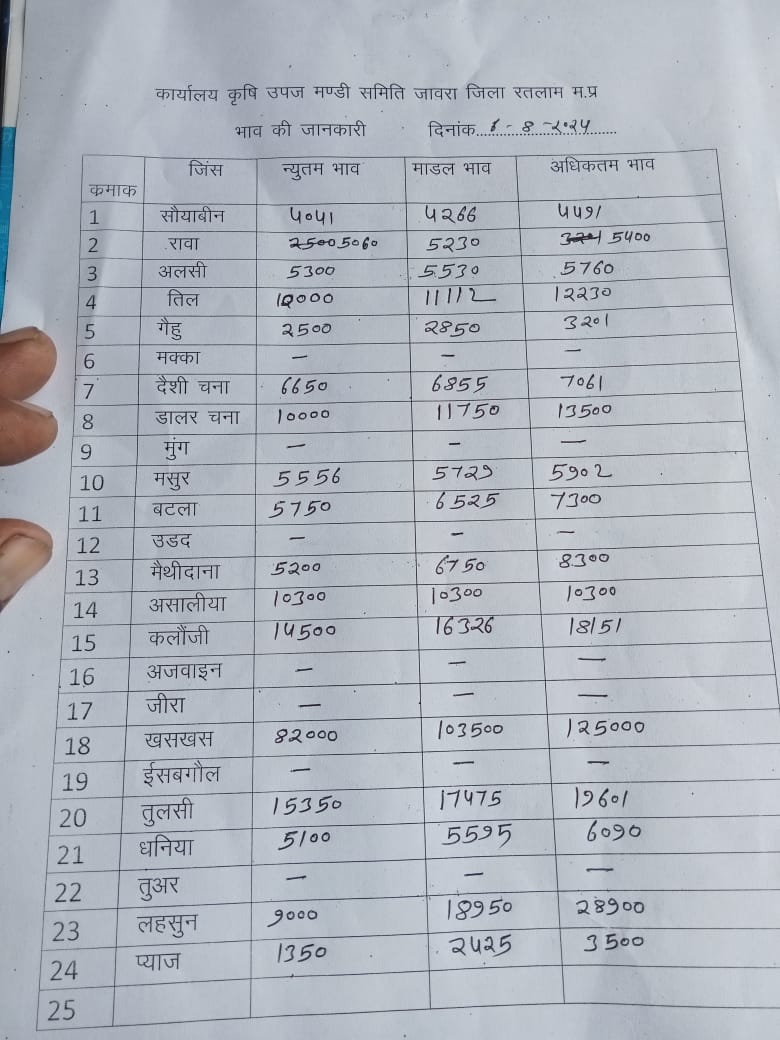 कार्यालय कृषि उपज मण्डी समिति जावरा जिला रतलाम म.प्र
भाव की जानकारी दिनांक...1-8-2024......
कमाक जिंस न्युतम भाव माडल भाव अधिकतम भाव
1 सौयाबीन 4041 4266 4491
2 रावा 2500 5060 5230 3201 5400
3 अलसी 5300 5530 5760
4 तिल 10000 11112 12230
5 गैहु 2500 2850 3201
6 मक्का — — —
7 दैशी चना 6650 6855 7061
8 डालर चना 10000 11750 13500
9 मुंग — — —
10 मसुर 5556 5729 5902
11 बटला 5750 6525 7300
12 उडद — — —
13 मैथीदाना 5200 6750 8300
14 असालीया 10300 10300 10300
15 कलौंजी 14500 16326 18151
16 अजवाइन — — —
17 जीरा — — —
18 खसखस 82000 103500 125000
19 ईसबगौल — — —
20 तुलसी 15350 17475 19601
21 धनिया 5100 5595 6090
22 तुअर — — —
23 लहसुन 9000 18950 28900
24 प्याज 1350 2425 3500
25